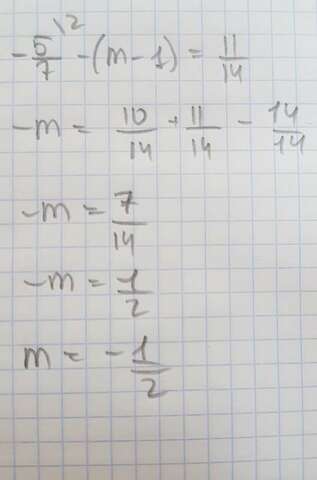 -5/7 \2 - (m - 1) = 11/14
-m = 10/14 + 11/14 - 14/14
-m = 7/14
-m = 1/2
m = - 1/2